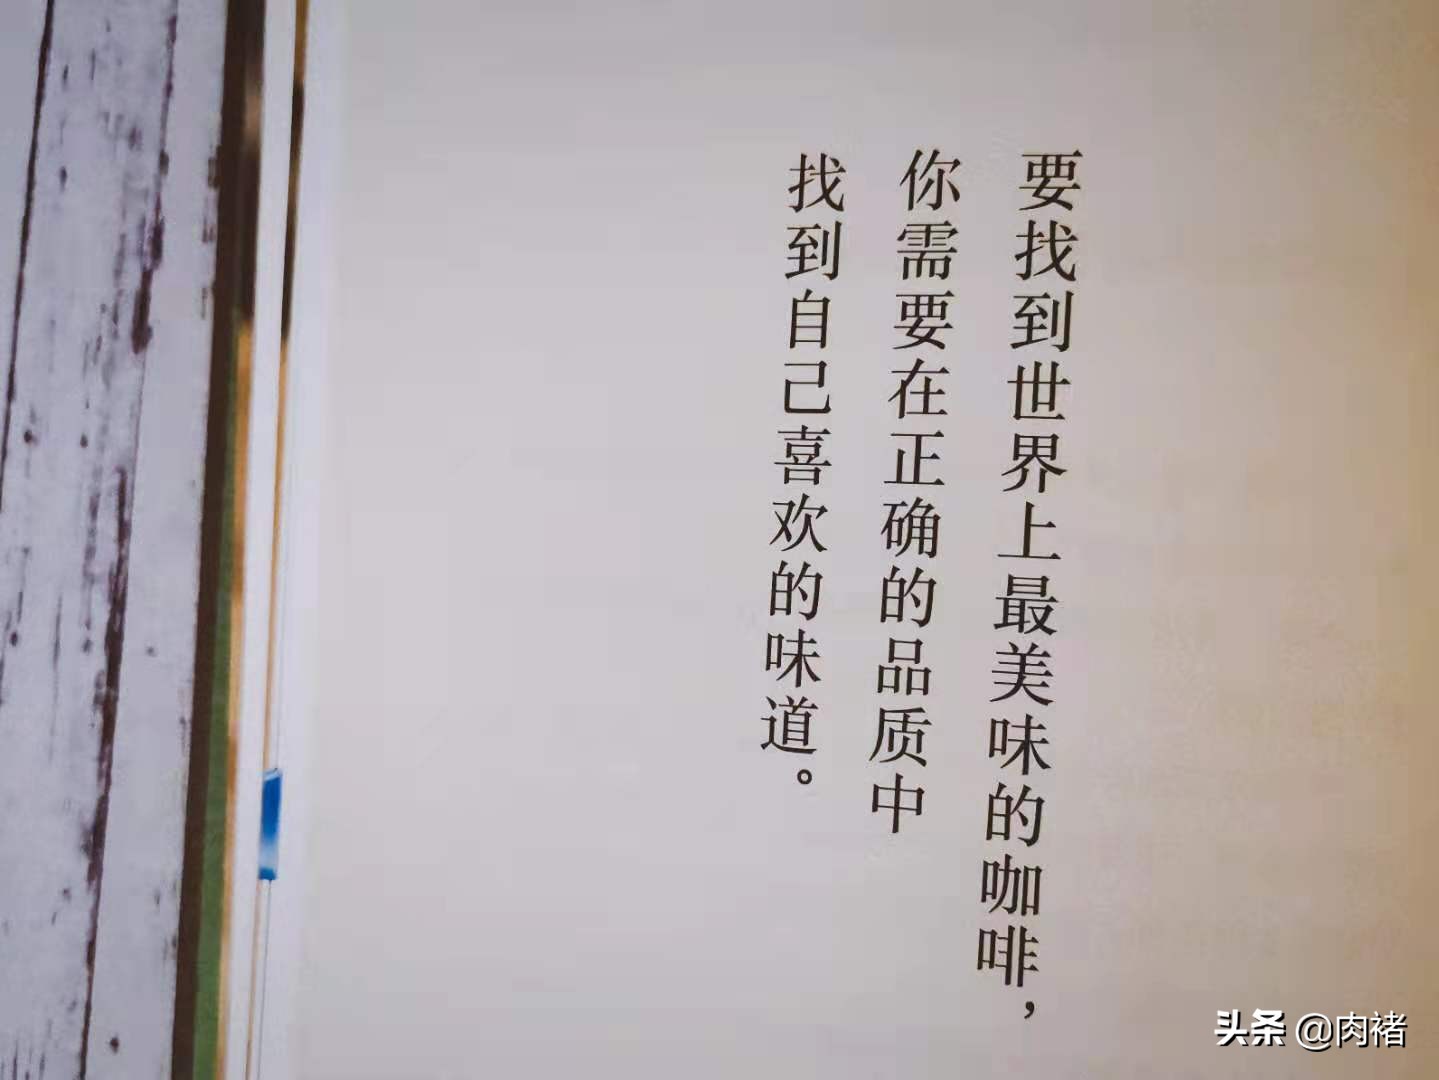 要找到世界上最美味的咖啡，
你需要在正确的品质中
找到自己喜欢的味道。
头条 @肉褚